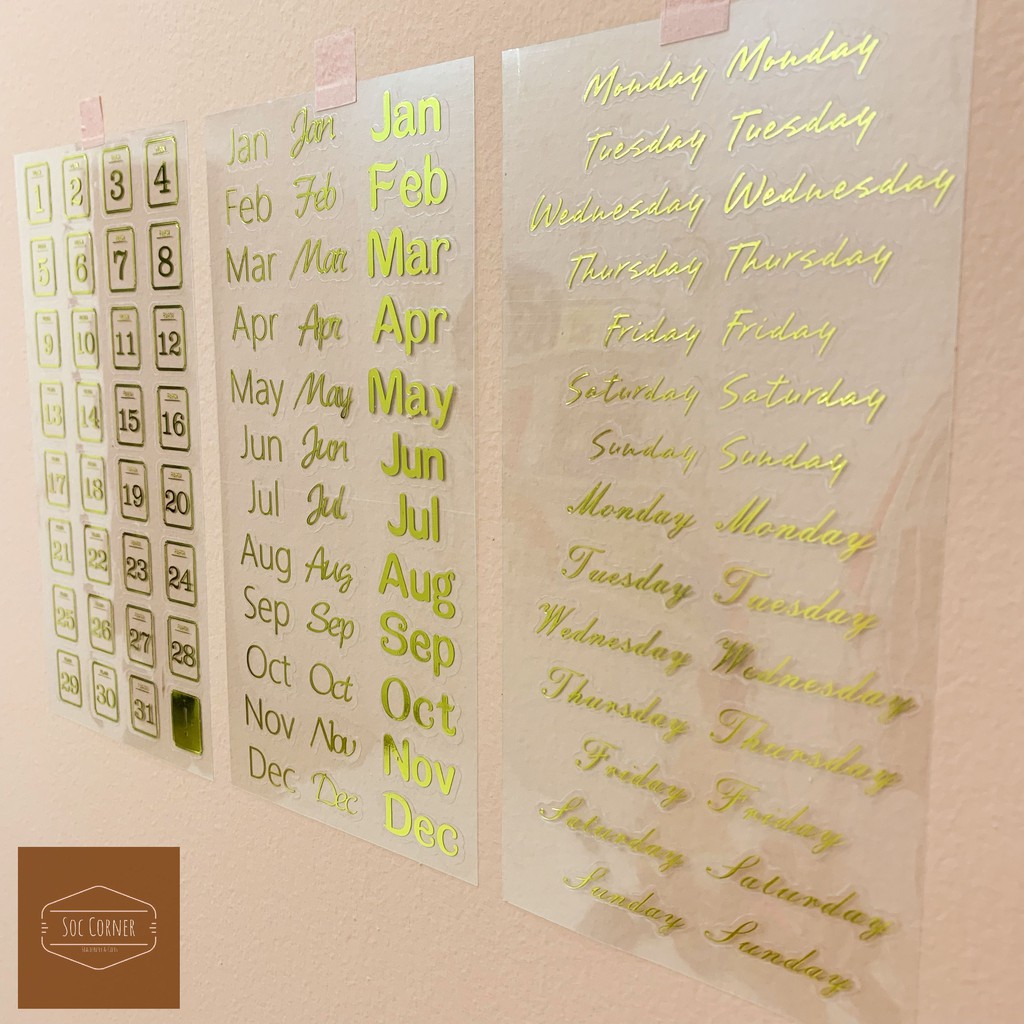 1 2 3 4
5 6 7 8
9 10 11 12
13 14 15 16
17 18 19 20
21 22 23 24
25 26 27 28
29 30 31
Jan Jan Jan
Feb Feb Feb
Mar Mar Mar
Apr Apr Apr
May May May
Jun Jun Jun
Jul Jul Jul
Aug Aug Aug
Sep Sep Sep
Oct Oct Oct
Nov Nov Nov
Dec Dec Dec
Monday Monday
Tuesday Tuesday
Wednesday Wednesday
Thursday Thursday
Friday Friday
Saturday Saturday
Sunday Sunday
Monday Monday
Tuesday Tuesday
Wednesday Wednesday
Thursday Thursday
Friday Friday
Saturday Saturday
Sunday Sunday
SOC CORNER